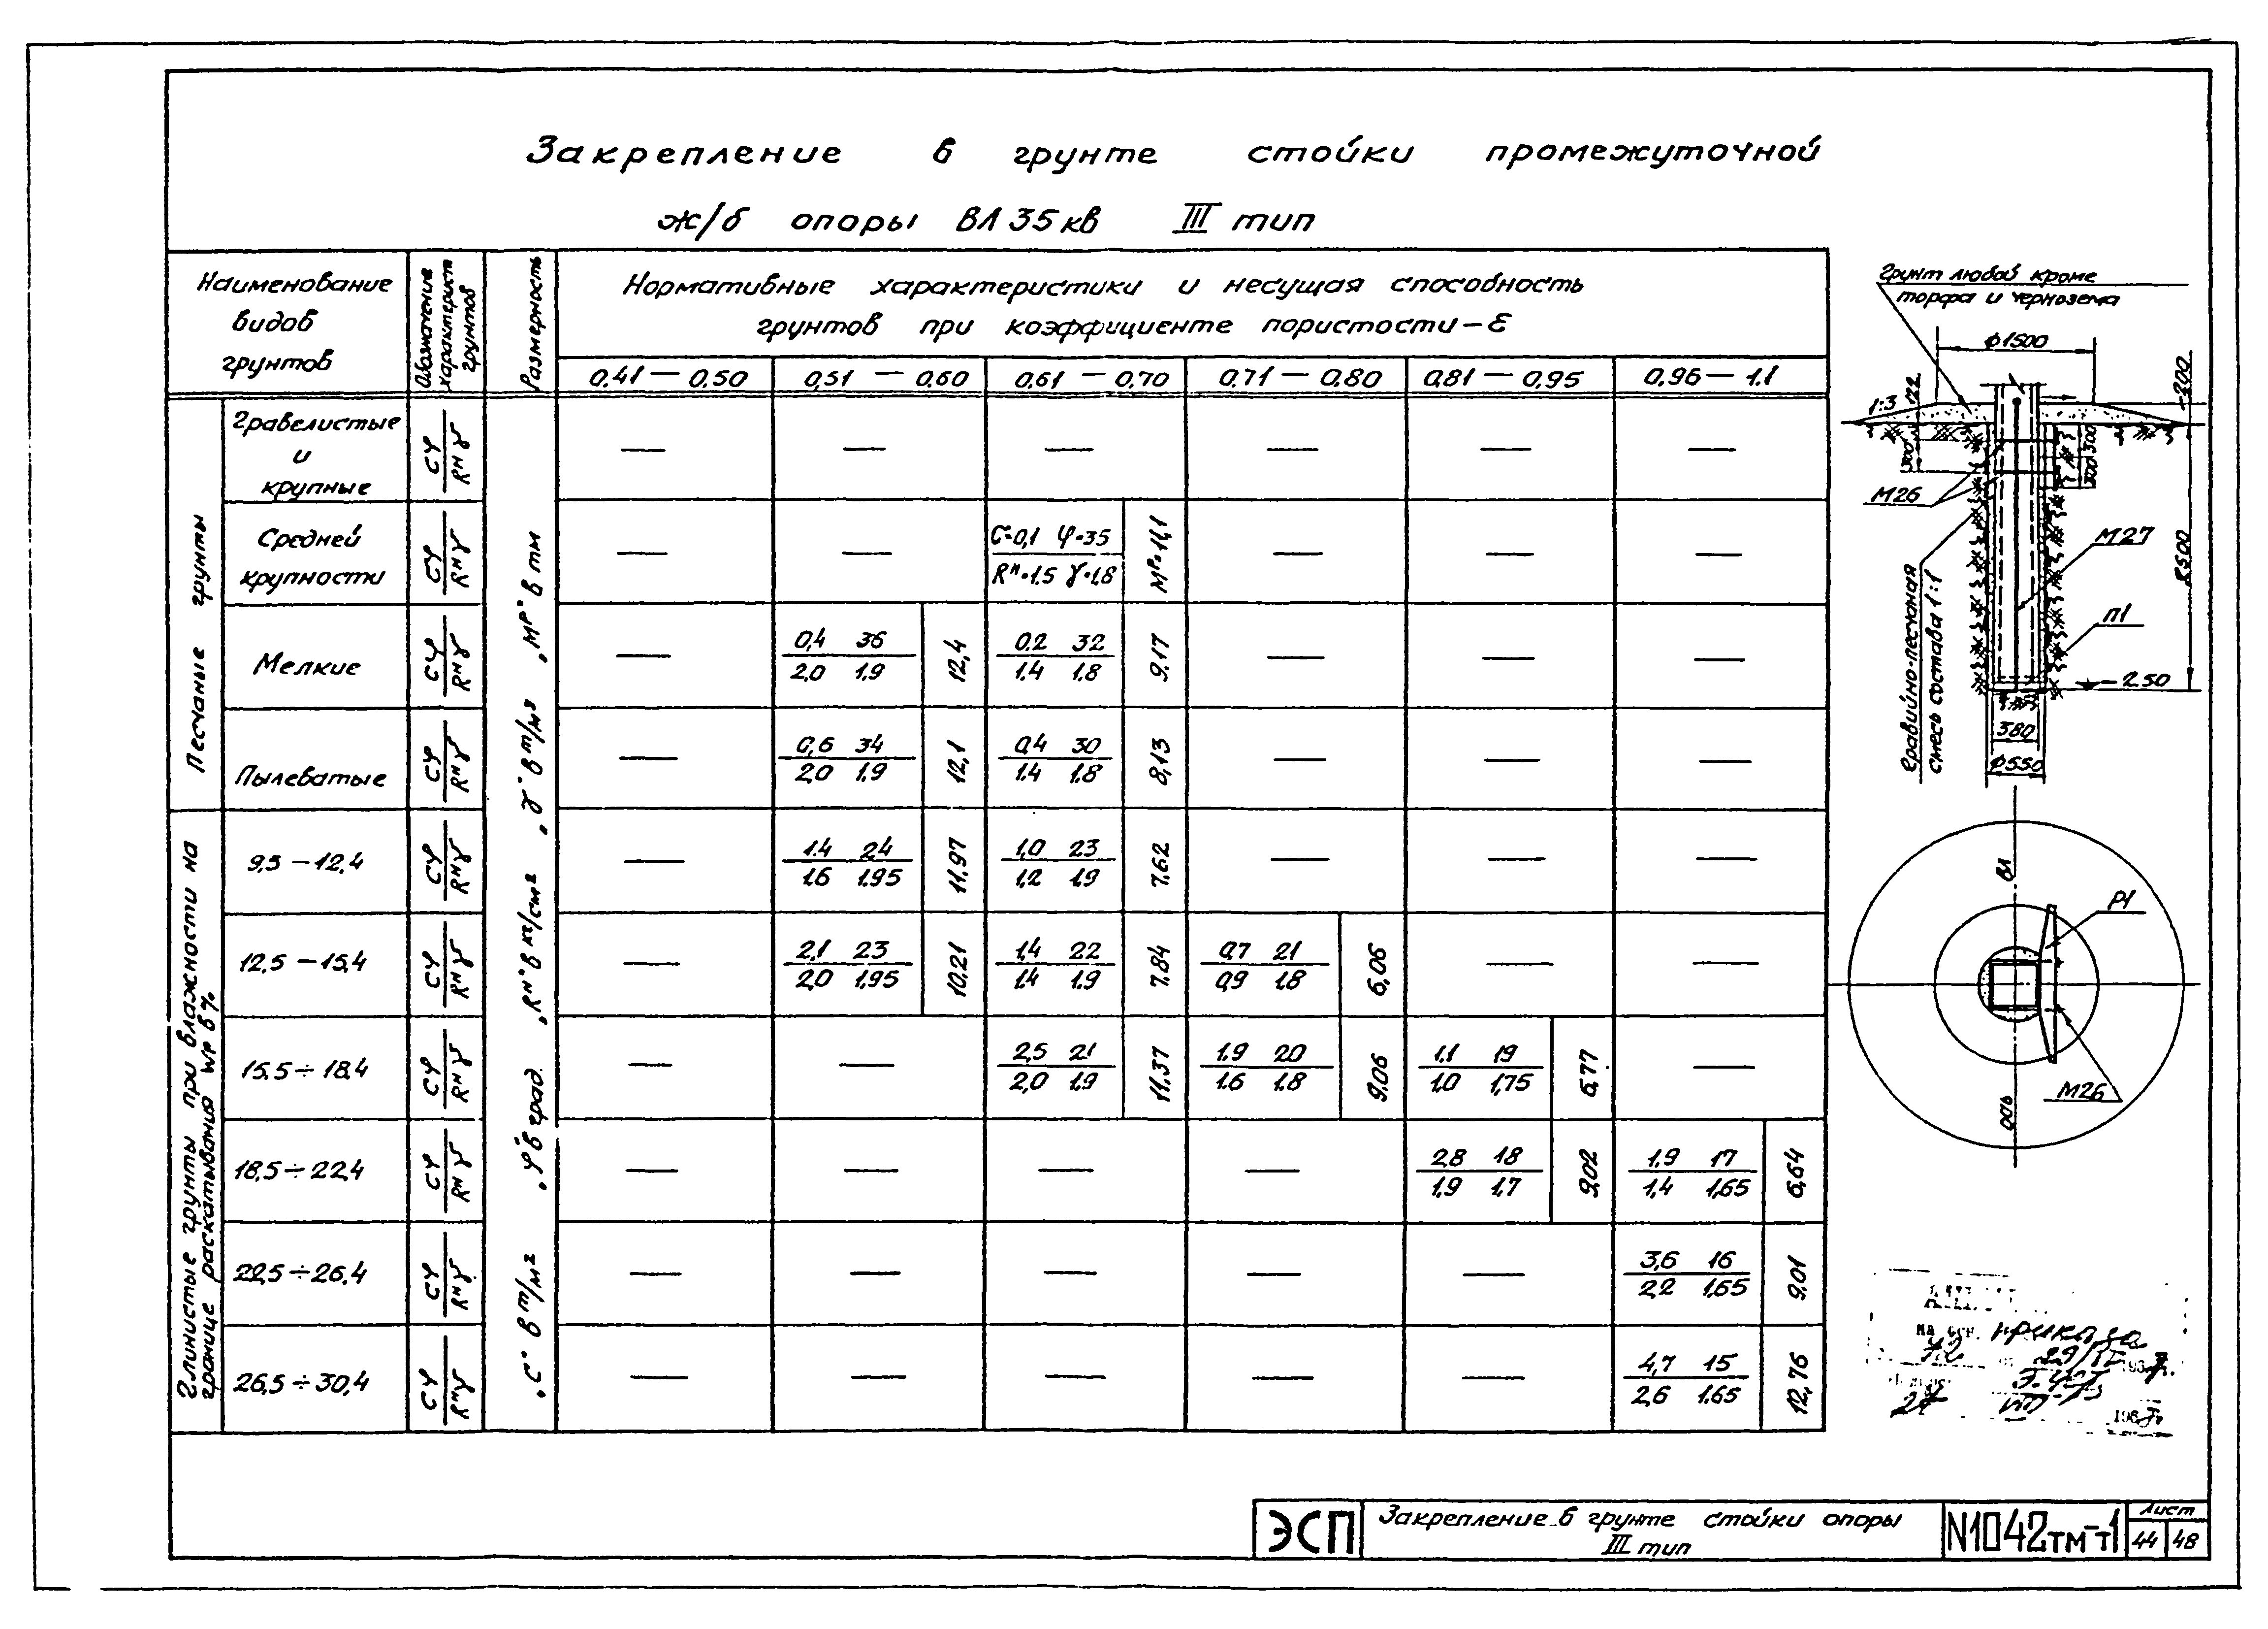 Закрепление в грунте стойки промежуточной
ж/б опоры ВЛ 35 кв III тип
Наименование
видов
грунтов
Обозначение
характерист
грунтов
Размерность
Нормативные характеристики и несущая способность
грунтов при коэффициенте пористости – ε
0,41 — 0,50
0,51 — 0,60
0,61 — 0,70
0,71 — 0,80
0,81 — 0,95
0,96 — 1.1
Песчаные грунты
„С" в т/м² „φ" в град. „Rн" в кг/см² „γ" в т/м³ „Мр" в тм
Гравелистые
и
крупные
Cφ
Rнγ
— — — — — —
Средней
крупности
Cφ
Rнγ
— —
C=0,1 φ=35
Rн=1.5 γ=1,8
Мр=11,1
— — —
Мелкие
Cφ
Rнγ
—
0,4 36
2,0 1.9
12,4
0.2 32
1.4 1.8
9.17
— — —
Пылеватые
Cφ
Rнγ
—
0,6 34
2,0 1.9
12,1
0,4 30
1.4 1.8
8,13
— — —
Глинистые грунты при влажности на
границе раскатывания Wp в %
9,5 — 12,4
Cφ
Rнγ
—
1.4 24
1.6 1.95
11,97
1,0 23
1,2 1.9
7.62
— — —
12,5 — 15,4
Cφ
Rнγ
—
2,1 23
2,0 1,95
10,21
1,4 22
1.4 1.9
7.84
0,7 21
0,9 1.8
6,06
— —
15,5 ÷ 18,4
Cφ
Rнγ
— —
2,5 21
2,0 1.9
11.37
1.9 20
1.6 1.8
9,06
1.1 19
1.0 1,75
6,77
—
18,5 ÷ 22,4
Cφ
Rнγ
— — — —
2,8 18
1.9 1.7
9,02
1.9 17
1,4 1,65
6,64
22,5 ÷ 26,4
Cφ
Rнγ
— — — — —
3,6 16
2,2 1,65
9,01
26,5 ÷ 30,4
Cφ
Rнγ
— — — — —
4,7 15
2,6 1.65
12,76
Грунт любой кроме
торфа и чернозема
ф1500
1:3
122
300
300
200
М26
М27
2500
П1
– 2.50
Гравийно-песчаная
смесь состава 1:1
380
ф550
ВЛ
Р1
М26
ось
приказа
ЭСП
Закрепление в грунте стойки опоры
III тип
N1042тм-т1
Лист
44 48